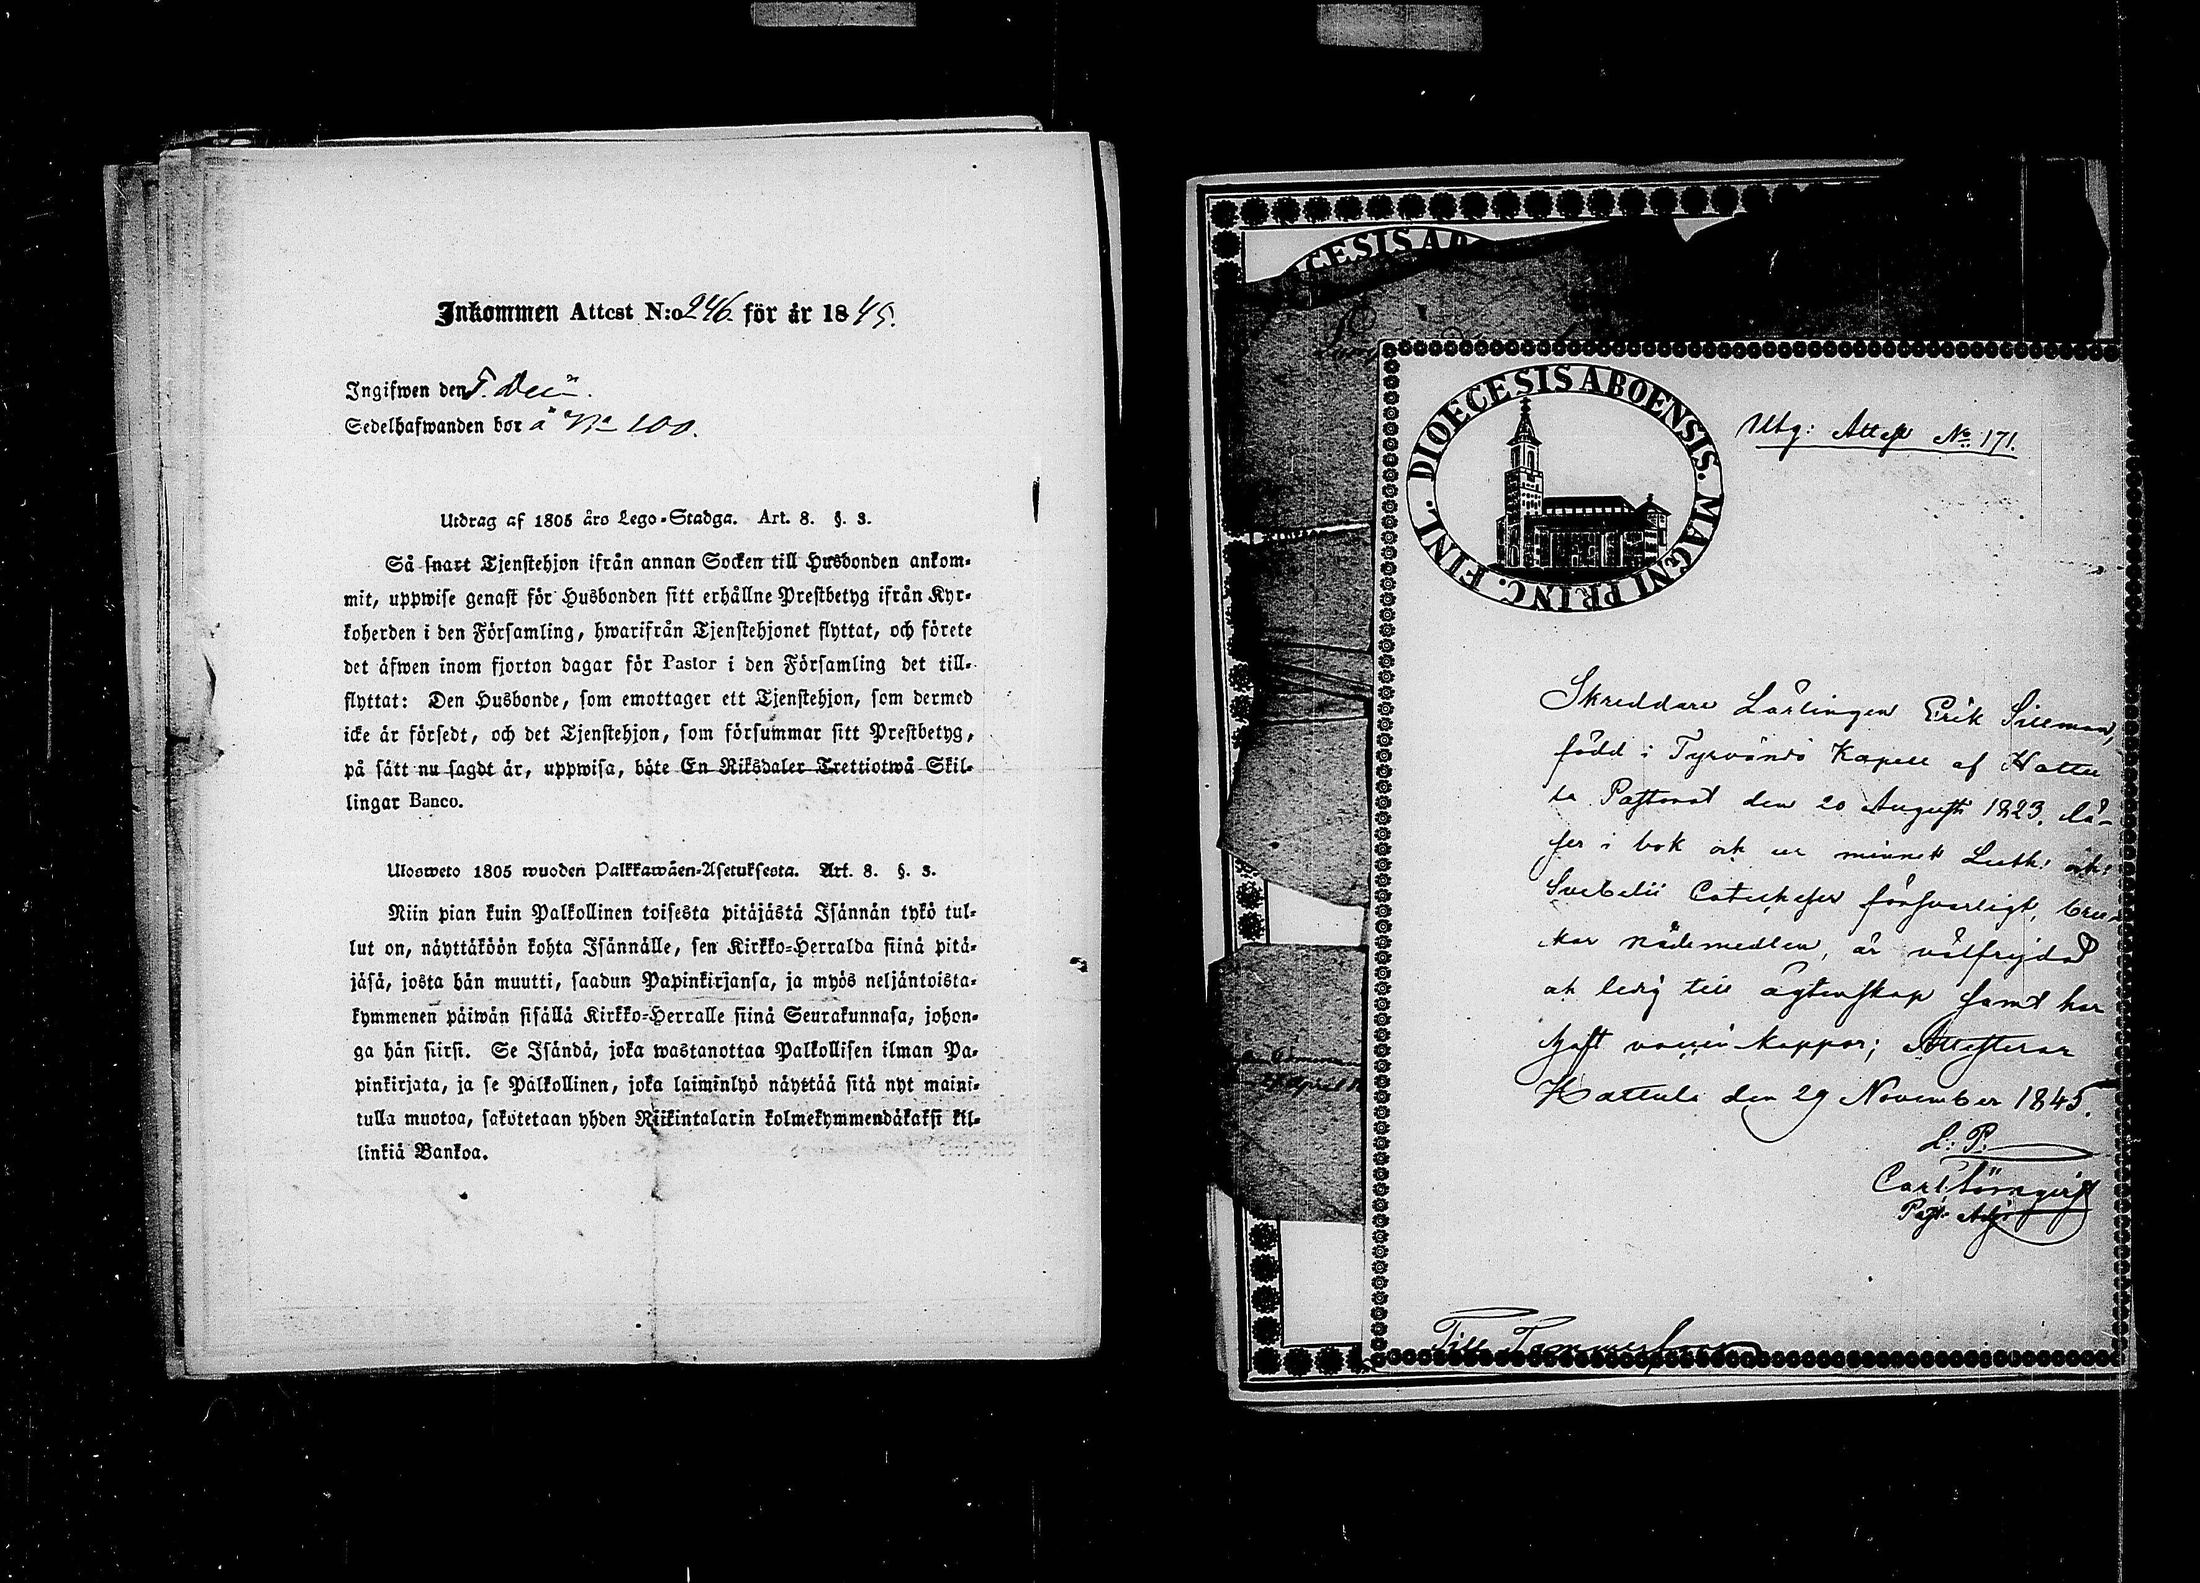 Inkommen Attest N:o 246. för år 1845.
Ingifwen den
Sedelhafwanden bor å No 100.
Utdrag af 1805 års Lego-Stadga. Art. 8. §. 3.
Så snart Tjenstehjon ifrån annan Socken till Husbonden ankom-
mit, uppwise genast för Husbonden sitt erhållne Prestbetyg ifrån Kyr-
koherden i den Församling, hwarifrån Tjenstehjonet flyttat, och förete
det äfwen inom fjorton dagar för Pastor i den Församling det till-
flyttat: Den Husbonde, som emottager ett Tjenstehjon, som dermed
icke är försedt, och det Tjenstehjon, som försummar sitt Prestbetyg,
på sätt nu sagdt är, uppwisa, böte En Riksdaler Trettiotwå Skil-
lingar Banco.
Ulosweto 1805 wuoden Palkkawäen-Asetuksesta. Art. 8. §. 3.
Niin pian kuin Palkollinen toisesta pitäjästä Isännän tykö tul-
lut on, näyttäköön kohta Isännälle, sen Kirkko-Herralda siinä pitä-
jäsä, josta hän muutti, saadun Papinkirjansa, ja myös neljäntoista-
kymmenen päiwän sisällä Kirkko-Herralle siinä Seurakunnasa, johon-
ga hän siirsi. Se Isändä, joka wastanottaa Palkollisen ilman Pa-
pinkirjata, ja se Palkollinen, joka laiminlyö näyttää sitä nyt maini-
tulla muotoa, sakotetaan yhden Riikintalarin kolmekymmendäkaksi kil-
linkiä Bankoa.
DIOECESIS ABOENSIS. MAGNI PRINC. FINL.
Utg: Attest No 171.
Skreddare Lärlingen Erik Sillman,
född i Tyrvändö Kapell af Hattu
la Pastorat den 20 Augusti 1823, lä-
ser i bok och ur minnet Luth: och
Svebelii Catecheser försvarligt, bru-
kar nådemedlen, är välfrejdad
och ledig till ägtenskap samt har
haft vaccin koppor; Attesterar
Hattula den 29 November 1845.
L. P.
Carl Törnqvist
Past: Adj:
Till Tammerfors